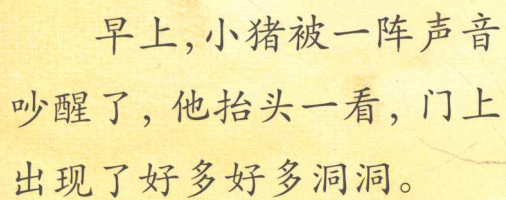 早上，小猪被一阵声音
吵醒了，他抬头一看，门上
出现了好多好多洞洞。